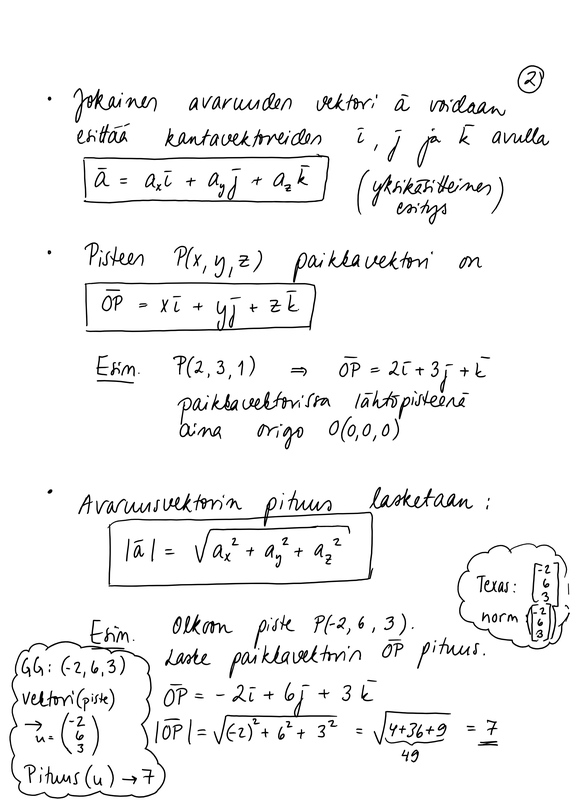 ②
• Jokainen avaruuden vektori ā voidaan
esittää kantavektoreiden ī, j̄ ja k̄ avulla
ā = aₓī + a_y j̄ + a_z k̄ (yksikäsitteinen
esitys)
• Pisteen P(x, y, z) paikkavektori on
O̅P̅ = xī + yj̄ + zk̄
Esim. P(2, 3, 1) ⇒ O̅P̅ = 2ī + 3j̄ + k̄
paikkavektorissa lähtöpisteenä
aina origo O(0,0,0)
• Avaruusvektorin pituus lasketaan :
|ā| = √(aₓ² + a_y² + a_z²)
Texas: [-2 6 3]
norm [-2 6 3]
Esim. Olkoon piste P(-2, 6, 3).
Laske paikkavektorin O̅P̅ pituus.
O̅P̅ = -2ī + 6j̄ + 3k̄
|O̅P̅| = √((-2)² + 6² + 3²) = √(4+36+9) = 7
49
GG: (-2,6,3)
vektori(piste)
→ u = (-2 6 3)
Pituus(u) → 7